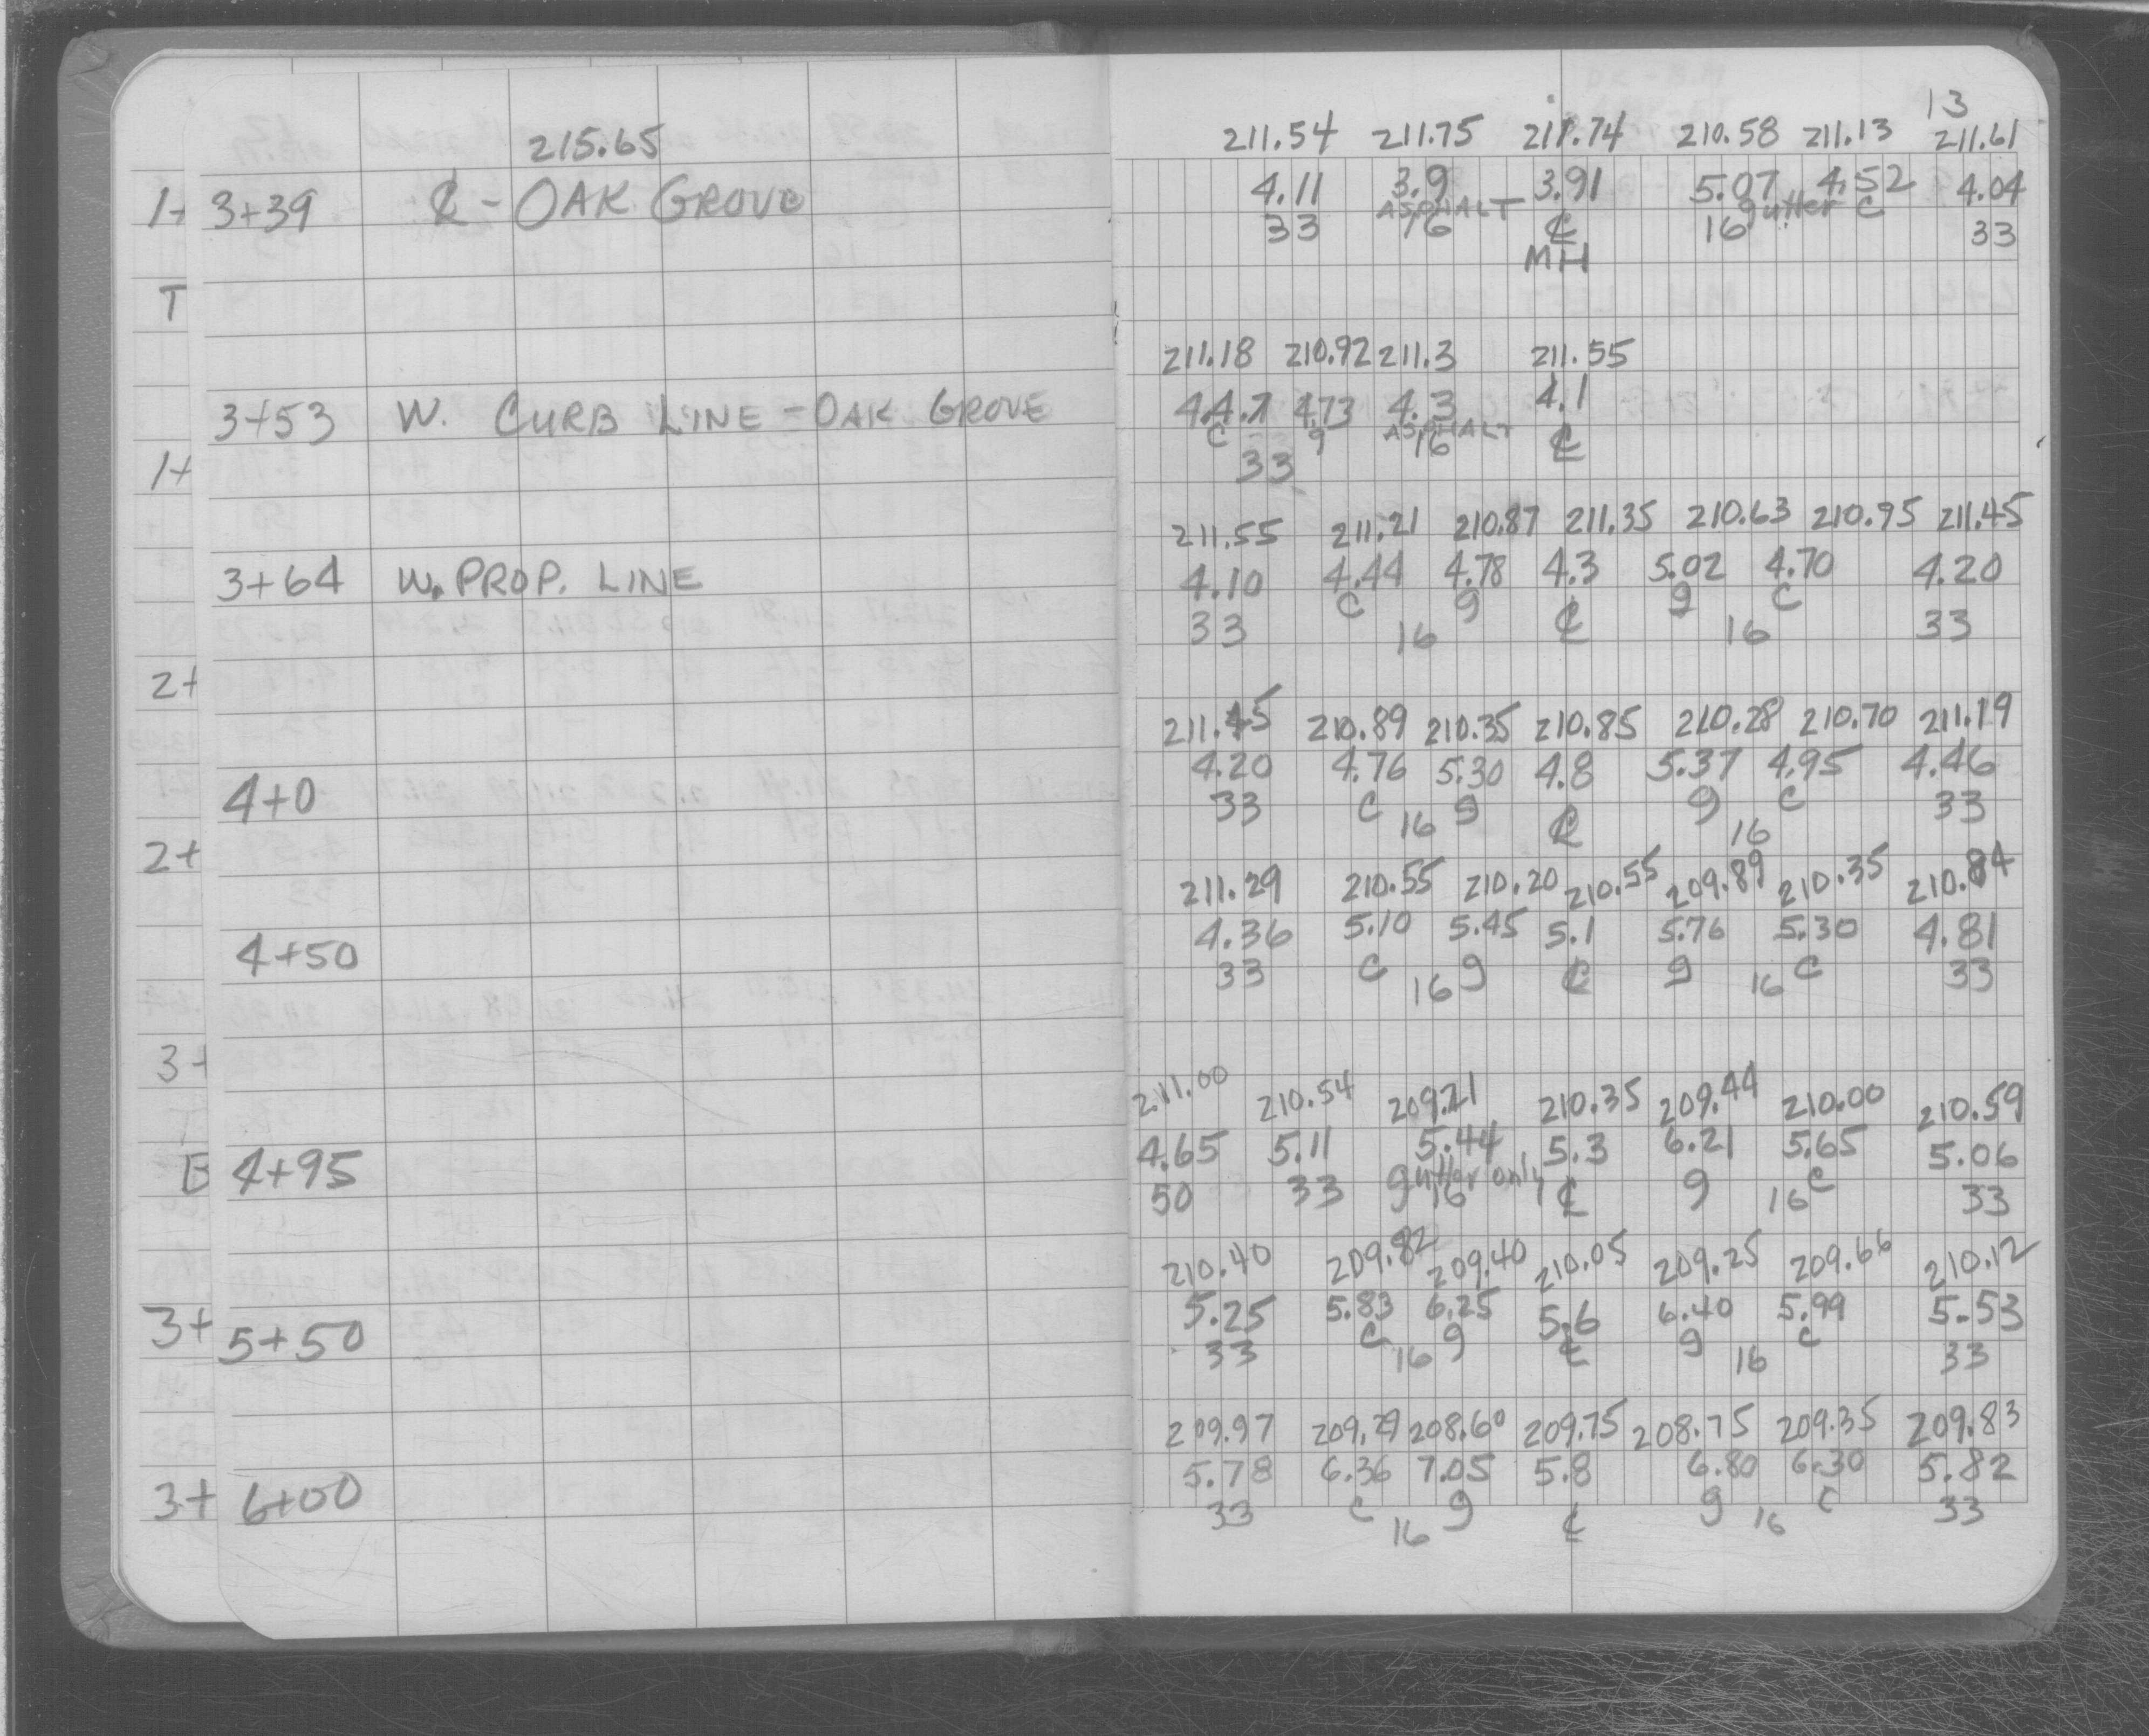 13
215.65
211.54 211.75 211.74 210.58 211.13 211.61
1+ 3+39 ℄ - OAK GROVE 4.11 3.9 3.91 5.07 4.52 4.04
ASPHALT gutter C
33 16 ℄ 16 33
MH
T
211.18 210.92 211.3 211.55
3+53 W. CURB LINE - OAK GROVE 4.4.7 4.73 4.3 4.1
C g ASPHALT
16 ℄
33
1+
211.55 211.21 210.87 211.35 210.63 210.95 211.45
3+64 W. PROP. LINE 4.10 4.44 4.78 4.3 5.02 4.70 4.20
C g g C
33 16 ℄ 16 33
2+
211.45 210.89 210.35 210.85 210.28 210.70 211.19
4+0 4.20 4.76 5.30 4.8 5.37 4.95 4.46
33 C g g C 33
16 ℄ 16
2+
211.29 210.55 210.20 210.55 209.89 210.35 210.84
4+50 4.36 5.10 5.45 5.1 5.76 5.30 4.81
33 C g ℄ g C 33
16 16
3+
211.00 210.54 209.21 210.35 209.44 210.00 210.59
4+95 4.65 5.11 5.44 5.3 6.21 5.65 5.06
gutter only
50 33 16 ℄ g 16 C 33
210.40 209.82 209.40 210.05 209.25 209.66 210.12
3+ 5+50 5.25 5.83 6.25 5.6 6.40 5.99 5.53
C g g C
33 16 ℄ 16 33
209.97 209.29 208.60 209.75 208.75 209.35 209.83
3+ 6+00 5.78 6.36 7.05 5.8 6.80 6.30 5.82
33 C g g C 33
16 ℄ 16